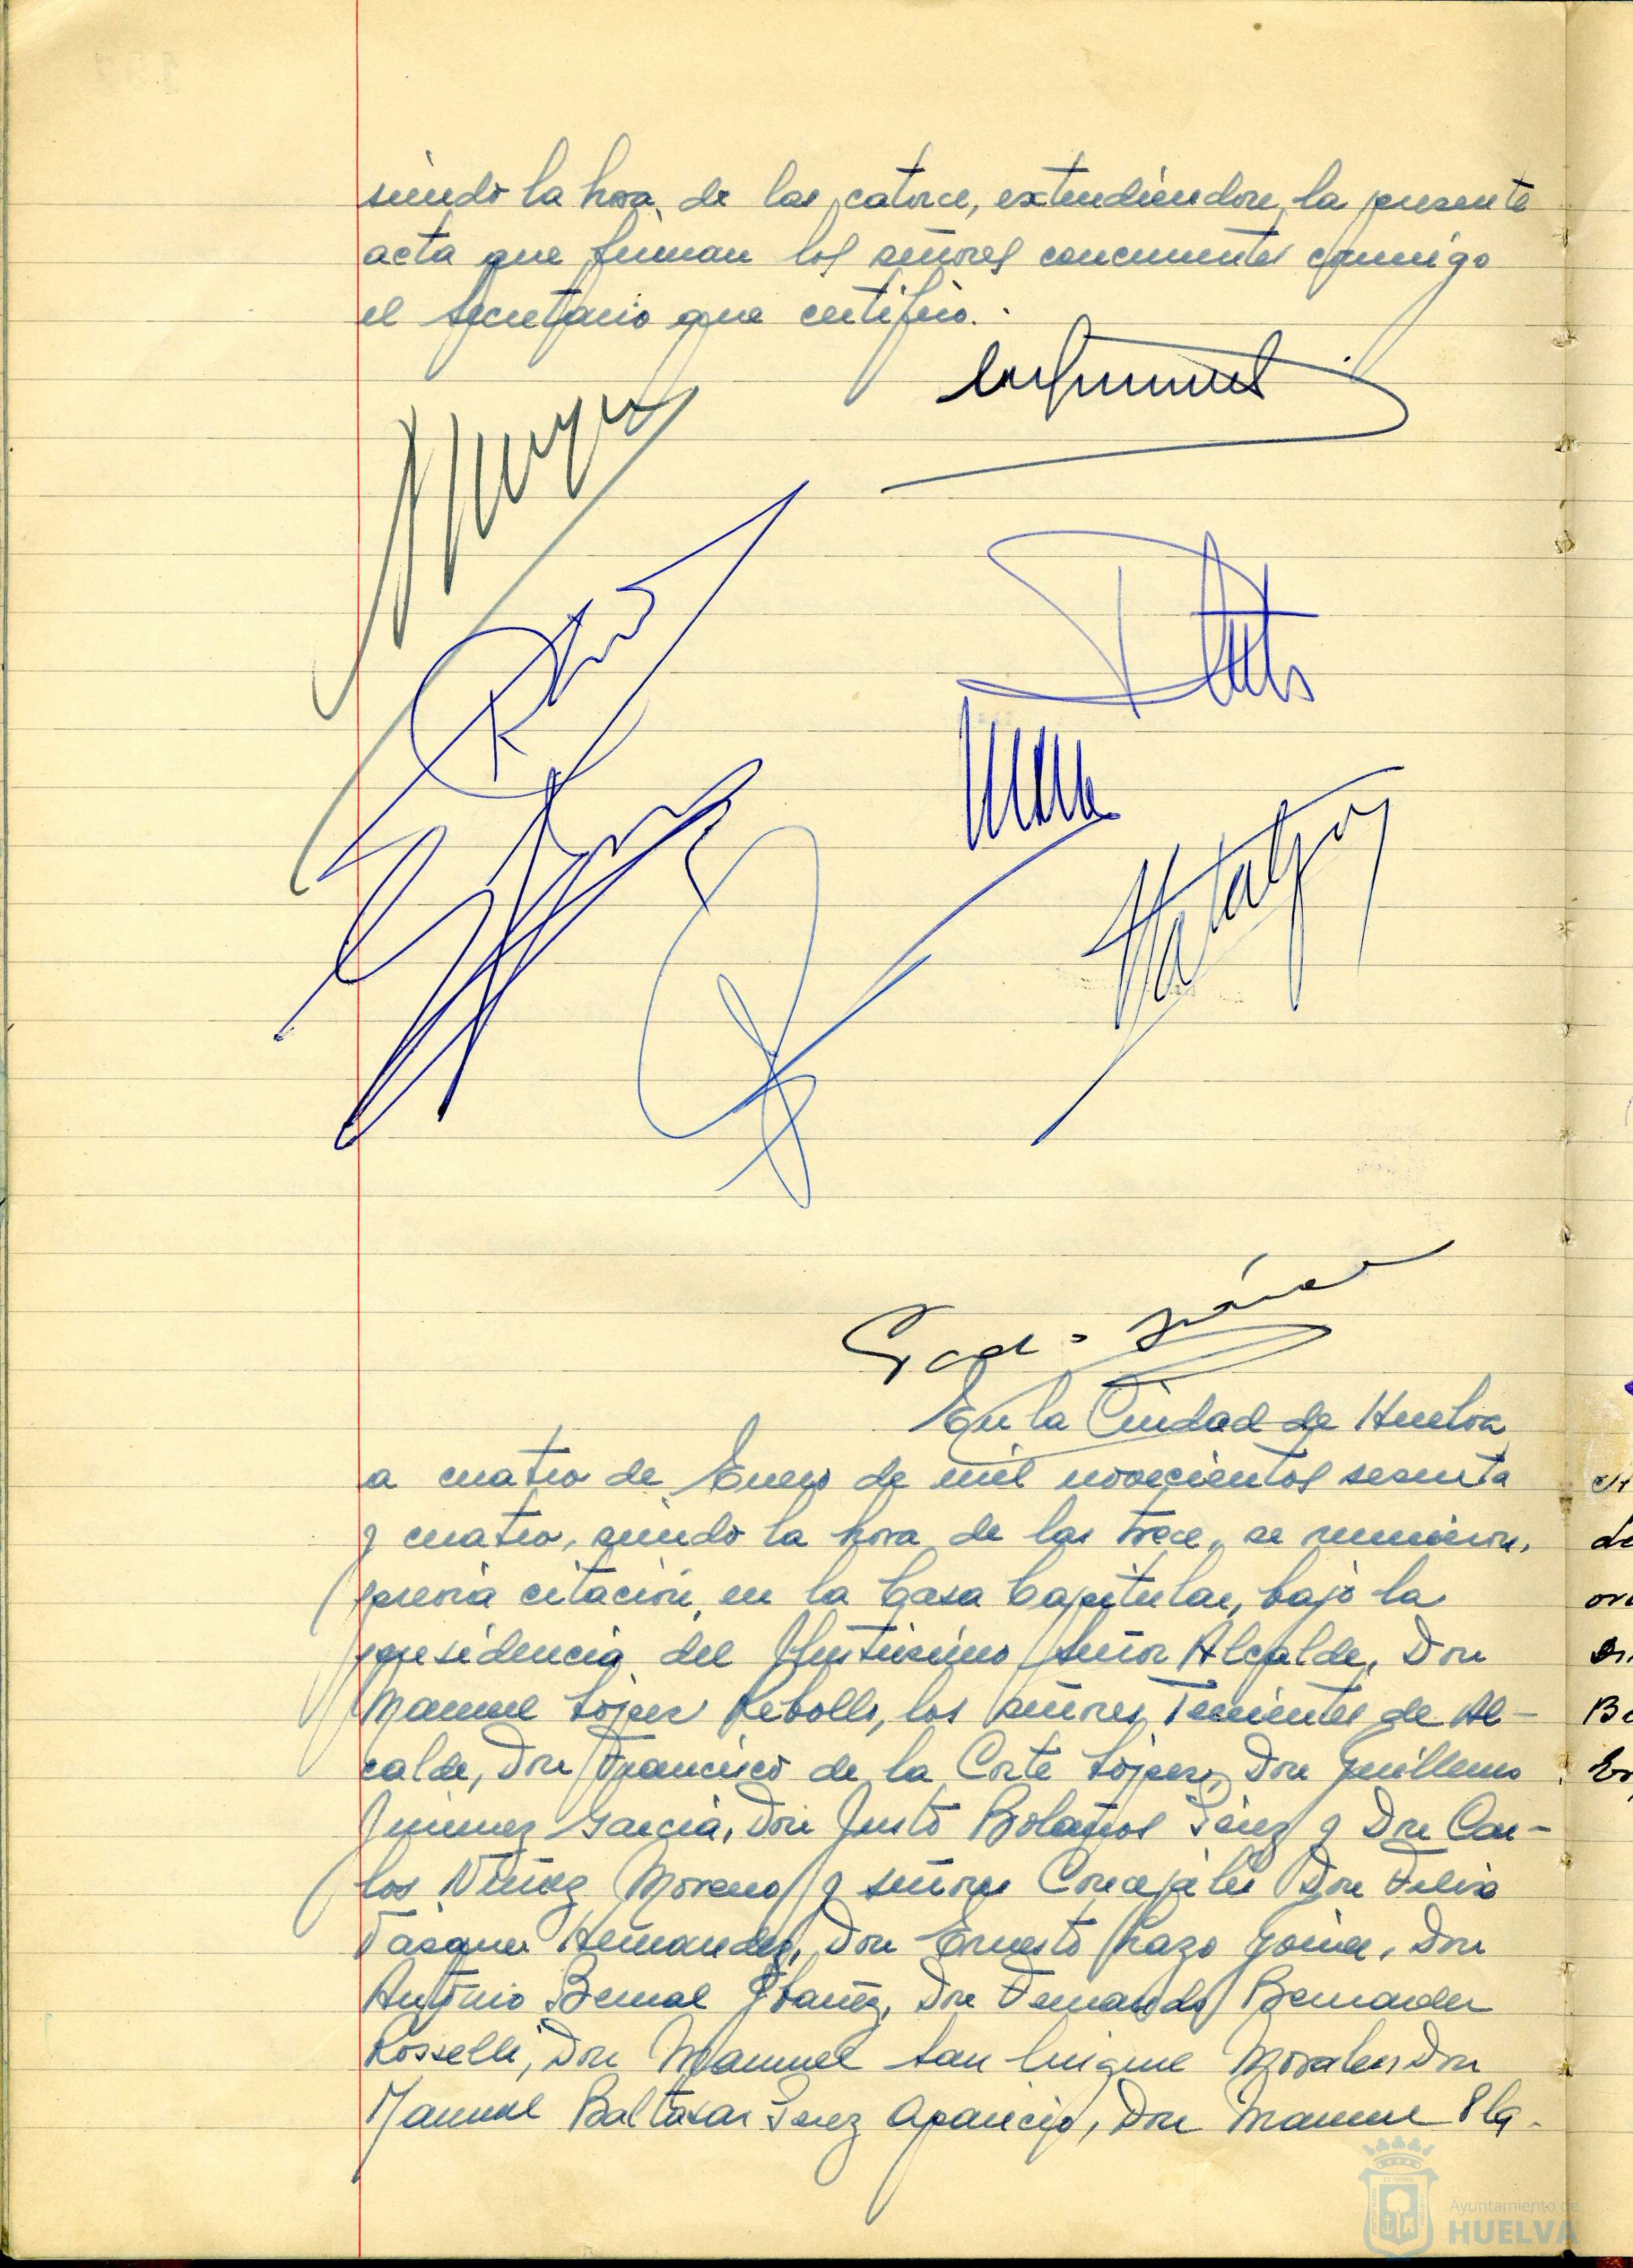 siendo la hora de las catorce, extendiéndose la presente
acta que firman los señores concurrentes conmigo
el Secretario que certifico.
En la Ciudad de Huelva
a cuatro de Enero de mil novecientos sesenta
y cuatro, siendo la hora de las trece, se reunieron,
previa citación, en la Casa Capitular, bajo la
presidencia del Ilustrísimo Señor Alcalde, Don
Manuel López Rebollo, los señores Tenientes de Al-
calde, Don Francisco de la Corte López, Don Guillermo
Jimenez García, Don Justo Bolaños Pérez y Don Car-
los Núñez Moreno y señores Concejales Don Felix
Vázquez Hernandez, Don Ernesto Lazo Don
Antonio Bernal Ibañez, Don Fernando Bernardez
Rosselli, Don Manuel San Miguel Morales Don
Manuel Baltasar Perez Aparicio, Don Manuel Pla-
Ayuntamiento de
HUELVA